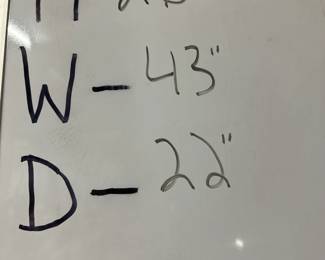 W - 43"
D - 22"